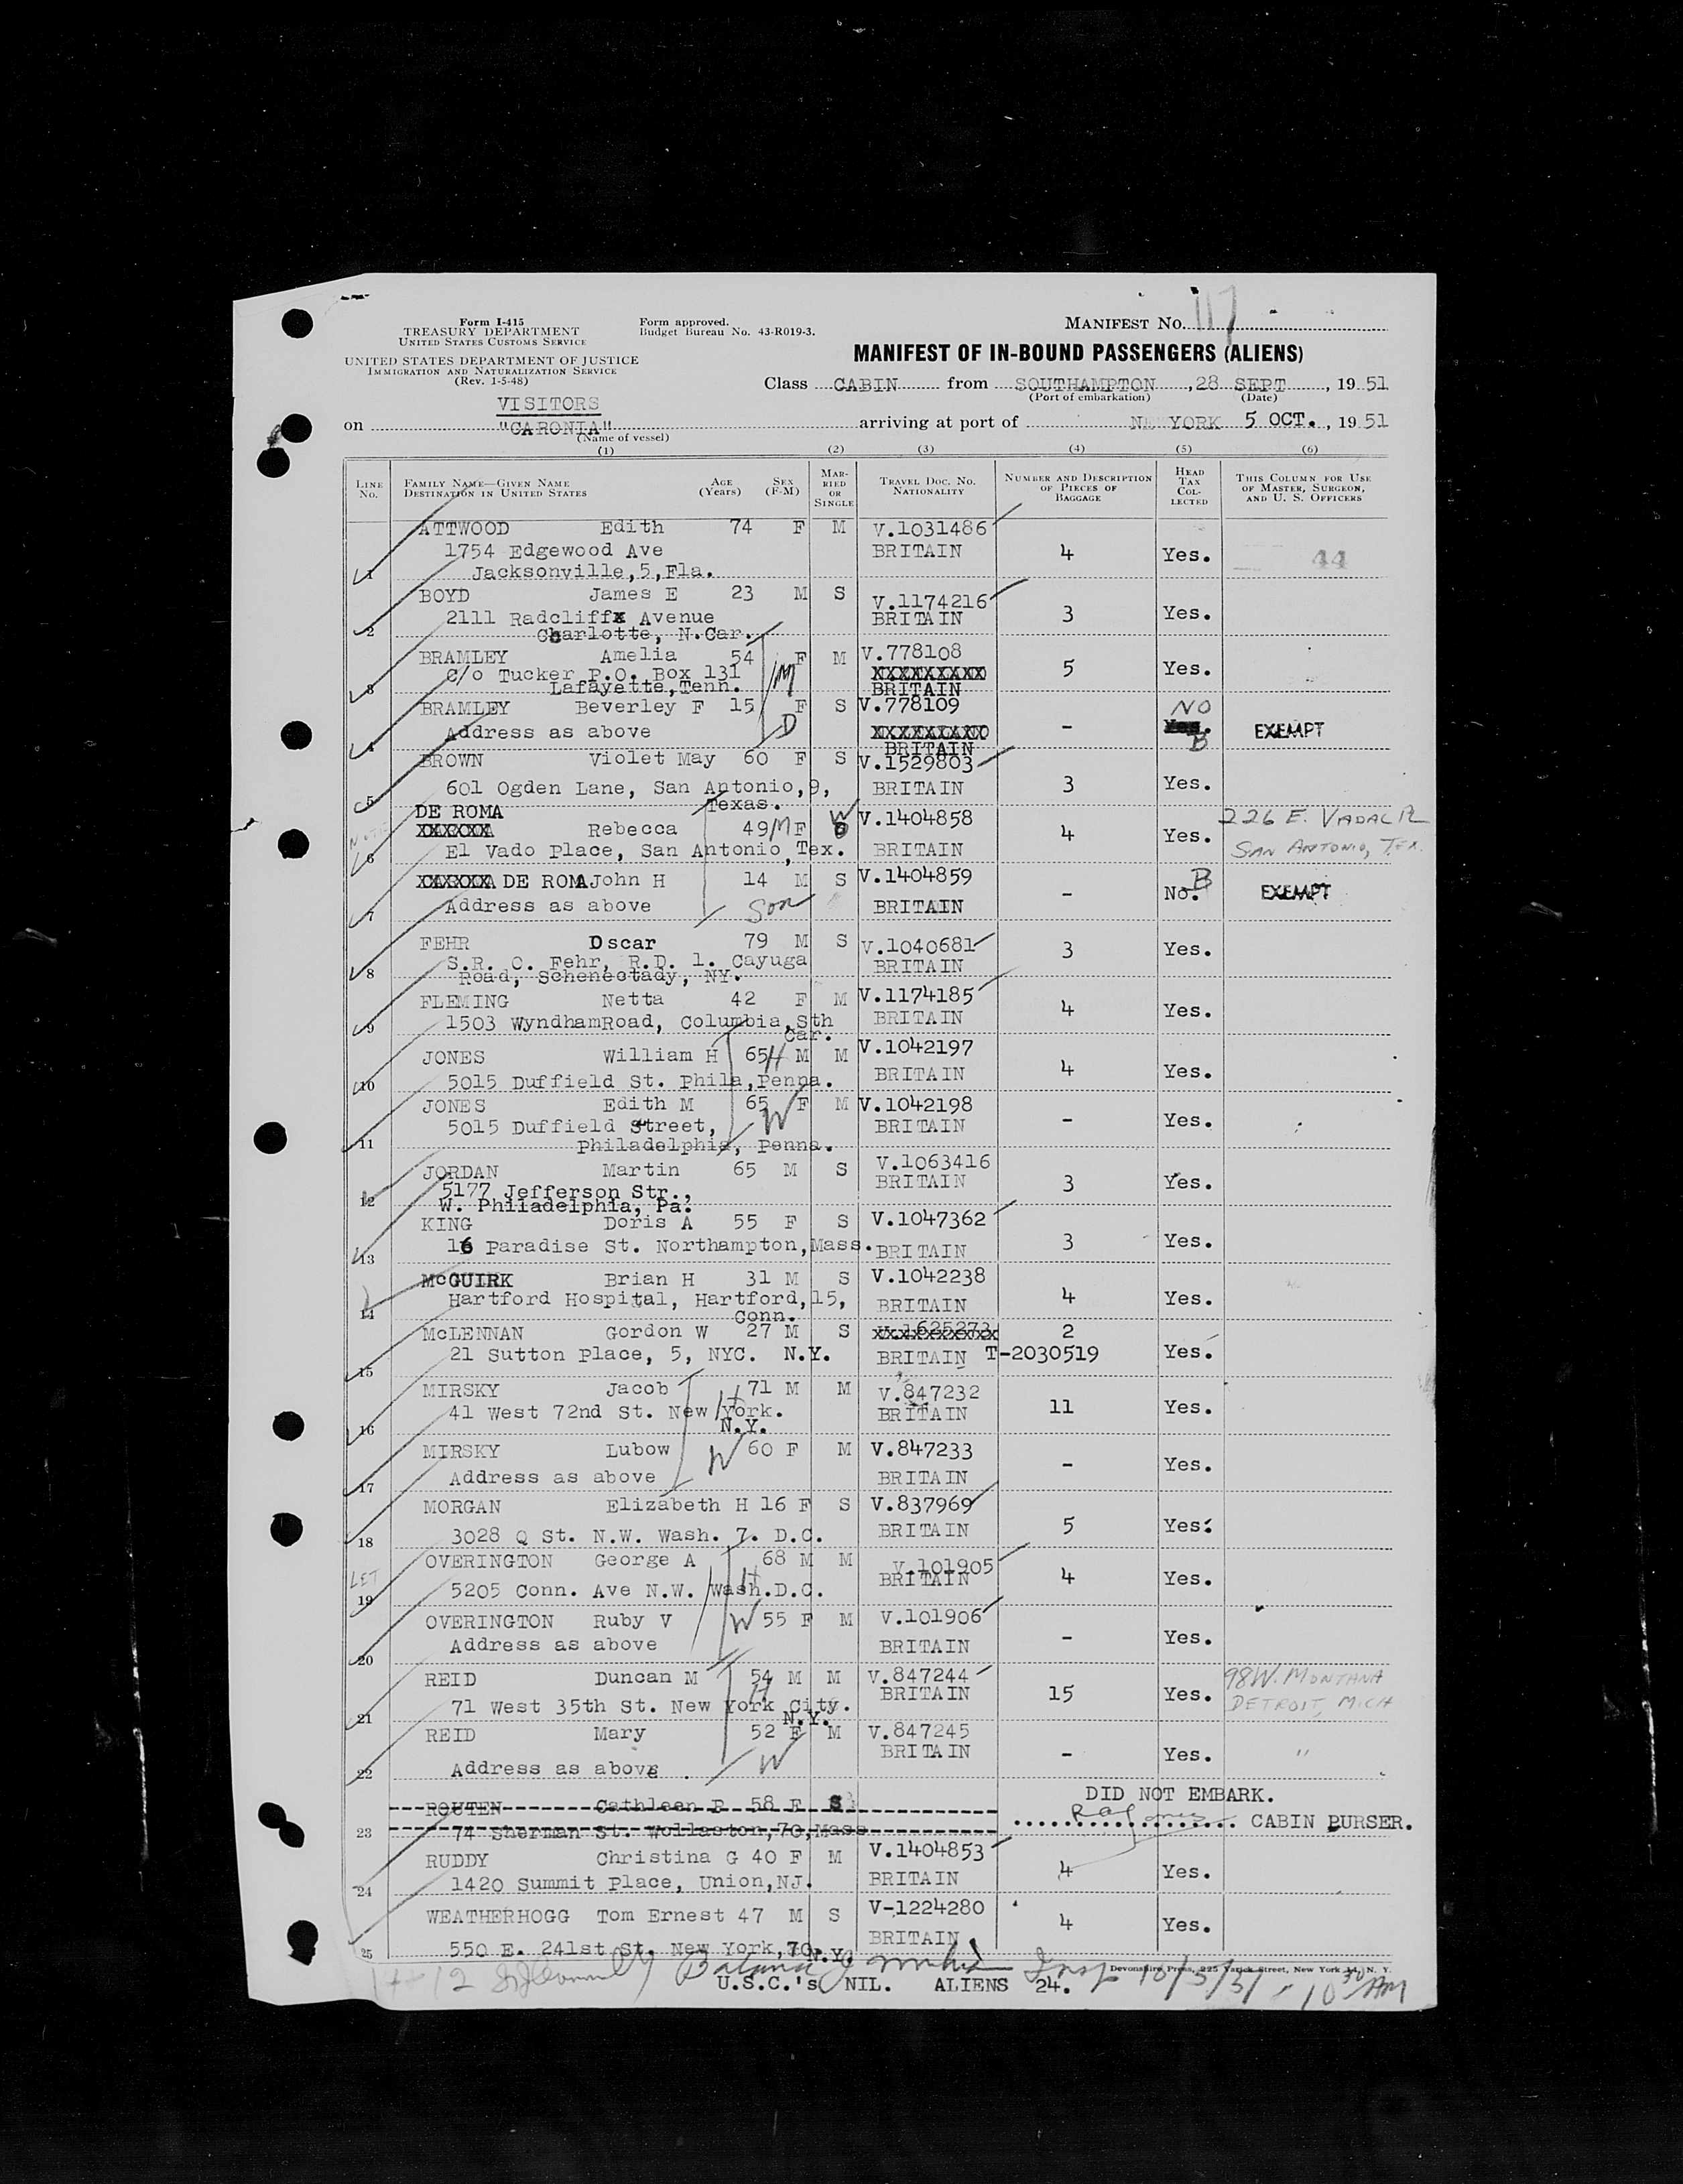 Form I-415
TREASURY DEPARTMENT
UNITED STATES CUSTOMS SERVICE
UNITED STATES DEPARTMENT OF JUSTICE
IMMIGRATION AND NATURALIZATION SERVICE
(Rev. 1-5-48)
Form approved.
Budget Bureau No. 43-R019-3.
MANIFEST No. 117
MANIFEST OF IN-BOUND PASSENGERS (ALIENS)
Class CABIN from SOUTHAMPTON, 28 SEPT, 19 51
(Port of embarkation) (Date)
VISITORS
on "CARONIA" arriving at port of NEW YORK 5 OCT., 19 51
(Name of vessel)
(1) (2) (3) (4) (5) (6)
LINE No. FAMILY NAME—GIVEN NAME DESTINATION IN UNITED STATES AGE (Years) SEX (F-M) MARRIED OR SINGLE TRAVEL DOC. NO. NATIONALITY NUMBER AND DESCRIPTION OF PIECES OF BAGGAGE HEAD TAX COLLECTED THIS COLUMN FOR USE OF MASTER, SURGEON, AND U. S. OFFICERS
ATTWOOD Edith 74 F M V.1031486
1754 Edgewood Ave BRITAIN 4 Yes. 44
1 Jacksonville,5,Fla.
BOYD James E 23 M S V.1174216
2111 Radcliffx Avenue BRITAIN 3 Yes.
2 Charlotte, N.Car.
BRAMLEY Amelia 54 F M V.778108
C/o Tucker P.O. Box 131 M XXXXXXXXX 5 Yes.
3 Lafayette,Tenn. BRITAIN
BRAMLEY Beverley F 15 F S V.778109 NO
Address as above D XXXXXXXXXX - Yes. EXEMPT
4 BRITAIN B
BROWN Violet May 60 F S V.1529803
601 Ogden Lane, San Antonio,9, BRITAIN 3 Yes.
5 Texas.
DE ROMA W V.1404858 226 E.
XXXXXX Rebecca 49 M F 4 Yes. SAN ANTONIO, TEX.
6 El Vado Place, San Antonio,Tex. BRITAIN
XXXXXX DE ROMA John H 14 M S V.1404859 B
Address as above Son BRITAIN - No. EXEMPT
7
FEHR Oscar 79 M S V.1040681 3 Yes.
S.R. C. Fehr, R.D. 1. Cayuga BRITAIN
8 Road, Schenectady, NY.
FLEMING Netta 42 F M V.1174185
9 1503 WyndhamRoad, Columbia,Sth BRITAIN 4 Yes.
Car.
JONES William H 65 H M M V.1042197
10 5015 Duffield St. Phila,Penna. BRITAIN 4 Yes.
JONES Edith M 65 F M V.1042198
5015 Duffield Street, W BRITAIN - Yes.
11 Philadelphia, Penna.
JORDAN Martin 65 M S V.1063416
5177 Jefferson Str., BRITAIN 3 Yes.
12 W. Philadelphia, Pa.
KING Doris A 55 F S V.1047362
13 16 Paradise St. Northampton,Mass. BRITAIN 3 Yes.
McGUIRK Brian H 31 M S V.1042238
14 Hartford Hospital, Hartford,15, BRITAIN 4 Yes.
Conn.
McLENNAN Gordon W 27 M S 2
15 21 Sutton Place, 5, NYC. N.Y. BRITAIN T-2030519 Yes.
MIRSKY Jacob H 71 M M V.847232
16 41 West 72nd St. New York. BRITAIN 11 Yes.
N.Y.
MIRSKY Lubow W 60 F M V.847233
17 Address as above BRITAIN - Yes.
MORGAN Elizabeth H 16 F S V.837969
18 3028 Q St. N.W. Wash. 7. D.C. BRITAIN 5 Yes.
OVERINGTON George A 68 M M V.101905
LET H BRITAIN 4 Yes.
19 5205 Conn. Ave N.W. Wash.D.C.
OVERINGTON Ruby V W 55 F M V.101906
20 Address as above BRITAIN - Yes.
REID Duncan M 54 M M V.847244 98 W. MONTANA
21 71 West 35th St. New York City. H BRITAIN 15 Yes. DETROIT, MICH
N.Y.
REID Mary 52 F M V.847245
22 Address as above. W BRITAIN - Yes. "
ROUTEN Cathleen P 58 F S DID NOT EMBARK.
23 74 Sherman St. Wollaston,70,Mass CABIN PURSER.
RUDDY Christina G 40 F M V.1404853
24 1420 Summit Place, Union,NJ. BRITAIN 4 Yes.
WEATHERHOGG Tom Ernest 47 M S V-1224280
25 550 E. 241st St. New York,70. N.Y. BRITAIN 4 Yes.
Devonshire Press, 225 Varick Street, New York 14, N. Y.
U.S.C.'s NIL. ALIENS 24. Insp 10/5/51 - 10 30 AM